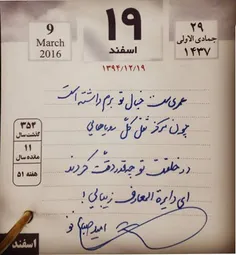 9
March
2016
۱۹
اسفند
۱۳۹۴/۱۲/۱۹
۲۹
جمادی الاولی
۱۴۳۷
۳۵۴
گذشت سال
۱۱
مانده سال
هفته ۵۱
عمری‌ست خیال تو برم داشته است
چون مرکز ثقل کل
در خلقت تو چقدر دقت کردند
ای دایرة المعارف زیبایی!
امید صباغ نو
اسفند